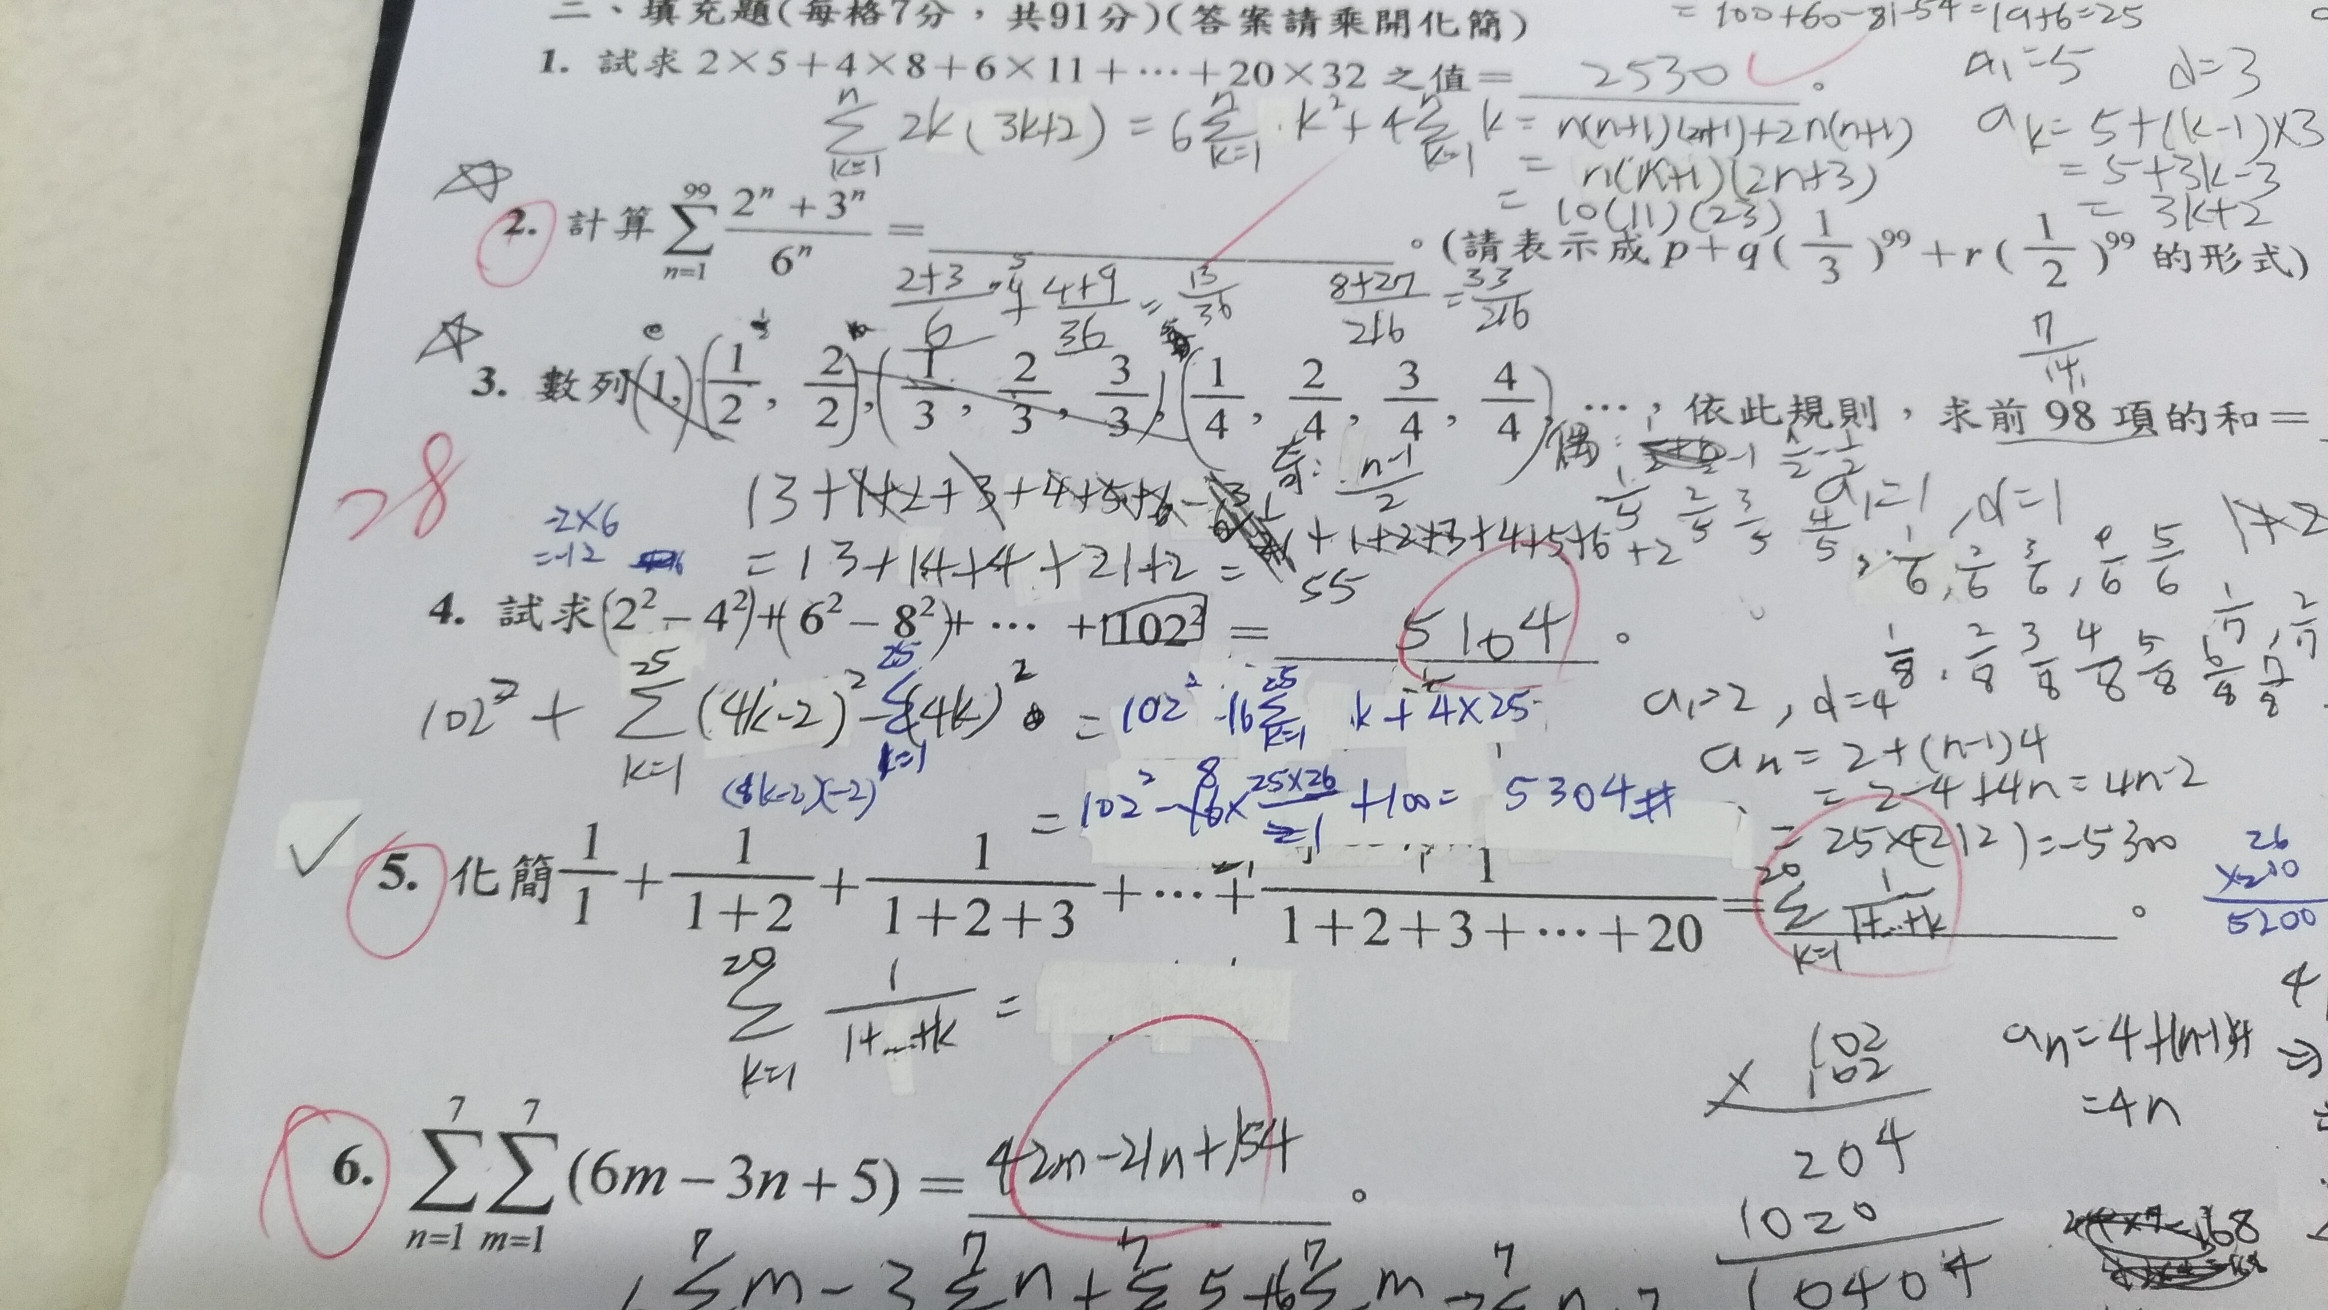 二、填充題(每格7分，共91分)(答案請乘開化簡)
= 100+60-81-54=19+6=25
1. 試求 2×5+4×8+6×11+⋯+20×32 之值= 2530 。
a₁=5 d=3
∑_{k=1}^{n} 2k(3k+2) = 6∑_{k=1}^{n} k²+4∑_{k=1}^{n} k = n(n+1)(2n+1)+2n(n+1)
= n(n+1)(2n+3)
= 10(11)(23)
a_k = 5+(k-1)×3
= 5+3k-3
= 3k+2
2. 計算 ∑_{n=1}^{99} (2ⁿ+3ⁿ)/6ⁿ = 。(請表示成 p+q(1/3)⁹⁹+r(1/2)⁹⁹ 的形式)
(2+3)/6 + (4+9)/36 = 13/36 (8+27)/216 = 33/216
7/14
3. 數列(1,)(1/2, 2/2),(1/3, 2/3, 3/3),(1/4, 2/4, 3/4, 4/4), ⋯，依此規則，求前 98 項的和=
奇: (n-1)/2 偶:
28
13+1+2+3+4+5+6
+1+2+3+4+5+6+2
= 13+14+4+21+2 = 55
a₁=1, d=1
1/5 2/5 3/5 4/5, 1/6, 2/6 3/6, 4/6 5/6
1/7, 2/7
1/8, 2/8 3/8 4/8 5/8 6/8 7/8
-2×6
=-12
4. 試求(2²-4²)+(6²-8²)+ ⋯ +102² = 5104 。
102² + ∑_{k=1}^{25} (4k-2)² - ∑_{k=1}^{25} (4k)² = 102² -16∑_{k=1}^{25} k + 4×25
(8k-2)(-2)
= 102² - 16× (25×26)/2 +100 = 5304#
a₁=2, d=4
a_n = 2+(n-1)4
= 2-4+4n = 4n-2
= 25×(-212) = -5300
26
×200
5200
5. 化簡 1/1 + 1/(1+2) + 1/(1+2+3) +⋯+ 1/(1+2+3+⋯+20) = ∑_{k=1}^{20} 1/(1+...+k) 。
∑_{k=1}^{20} 1/(1+...+k) =
a_n = 4+(n-1)4
=4n
102
× 102
204
1020
10404
6. ∑_{n=1}^{7} ∑_{m=1}^{7} (6m-3n+5) = 42m-21n+154 。